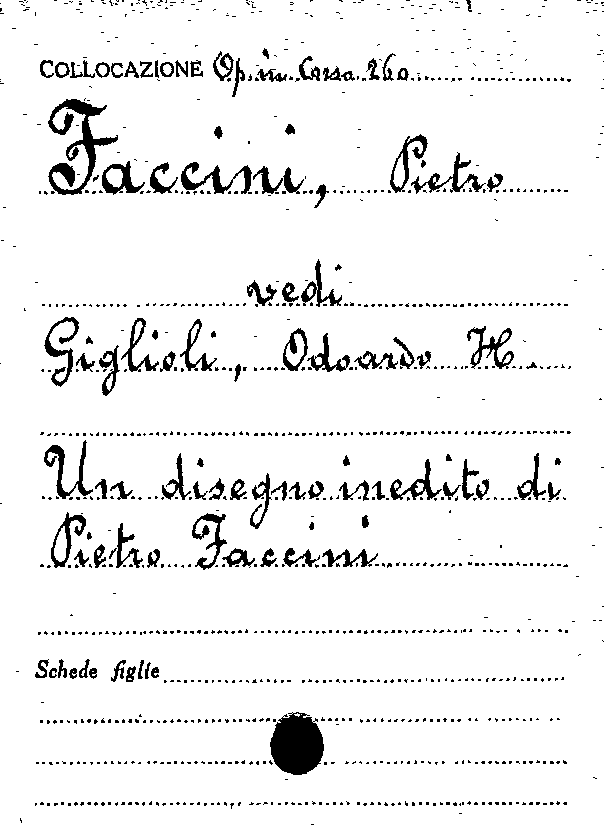 COLLOCAZIONE Op. in Cassa 260
Faccini, Pietro
vedi
Giglioli, Odoardo H.
Un disegno inedito di
Pietro Faccini
Schede figlie